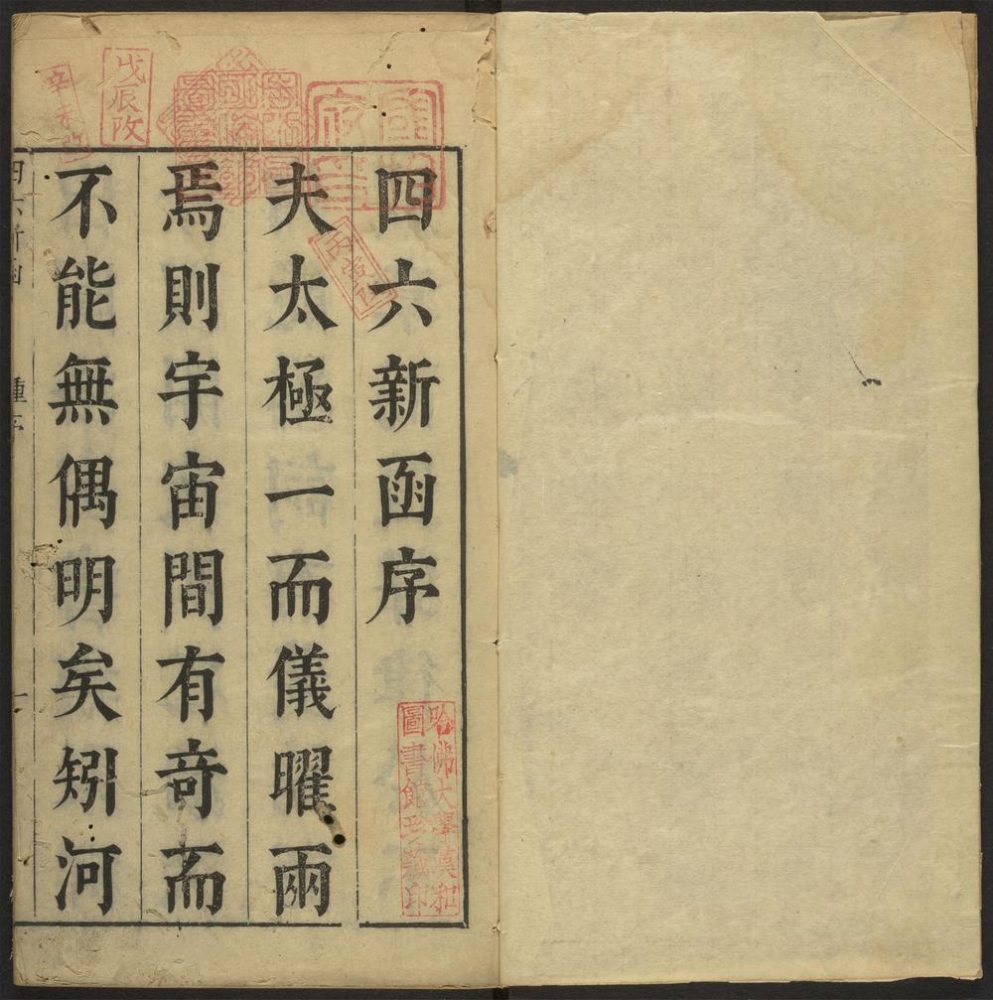 四六新函序
夫太極一而儀曜兩
焉則宇宙間有奇而
不能無偶明矣矧河
戊辰攺
辛未攺
哈佛大學漢和
圖書館珍藏印